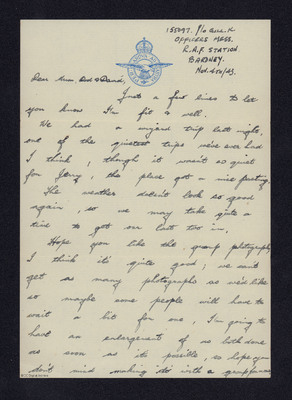 155097. F/O
OFFICERS MESS.
R.A.F. STATION.
BARDNEY.
Nov. 4th/43.
Dear Mum Dad & David,
Just a few lines to let
you know I'm fit & well.
We had a wizard trip last night,
one of the quietest trips we've ever had
I think, though it wasn't so quiet
for Jerry, the place got a nice pasting.
The weather doesn't look so good
again, so we may take quite a
time to get our last two in.
Hope you like the group photograph,
I think it's quite good; we can't
get as many photographs as we'd like
so maybe some people will have to
wait a bit for one, I'm going to
have an enlargement of us both done
as soon as its possible, so hope you
don't mind making do with a